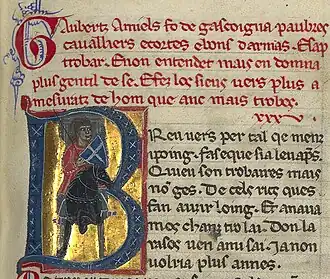 Gaubert Amiels fo de gascoigna paubres
cauailliers ecortes ebons darmas. Esap
trobar. Enon entendet mais en domna
plus gentil de se. Efez los siens uers plus a
mesuratz de hom que anc mais trobes.
xxx
Breu uers per tal qe meinz
ipoing. fas eque sia
Qu ieu son trobaires mais
no ges. De cels ricx qes
fan auzir loing. Et anaua
mes chan tro lai. Don la
rasos uen ami sai. Ia non
uolria plus annes.